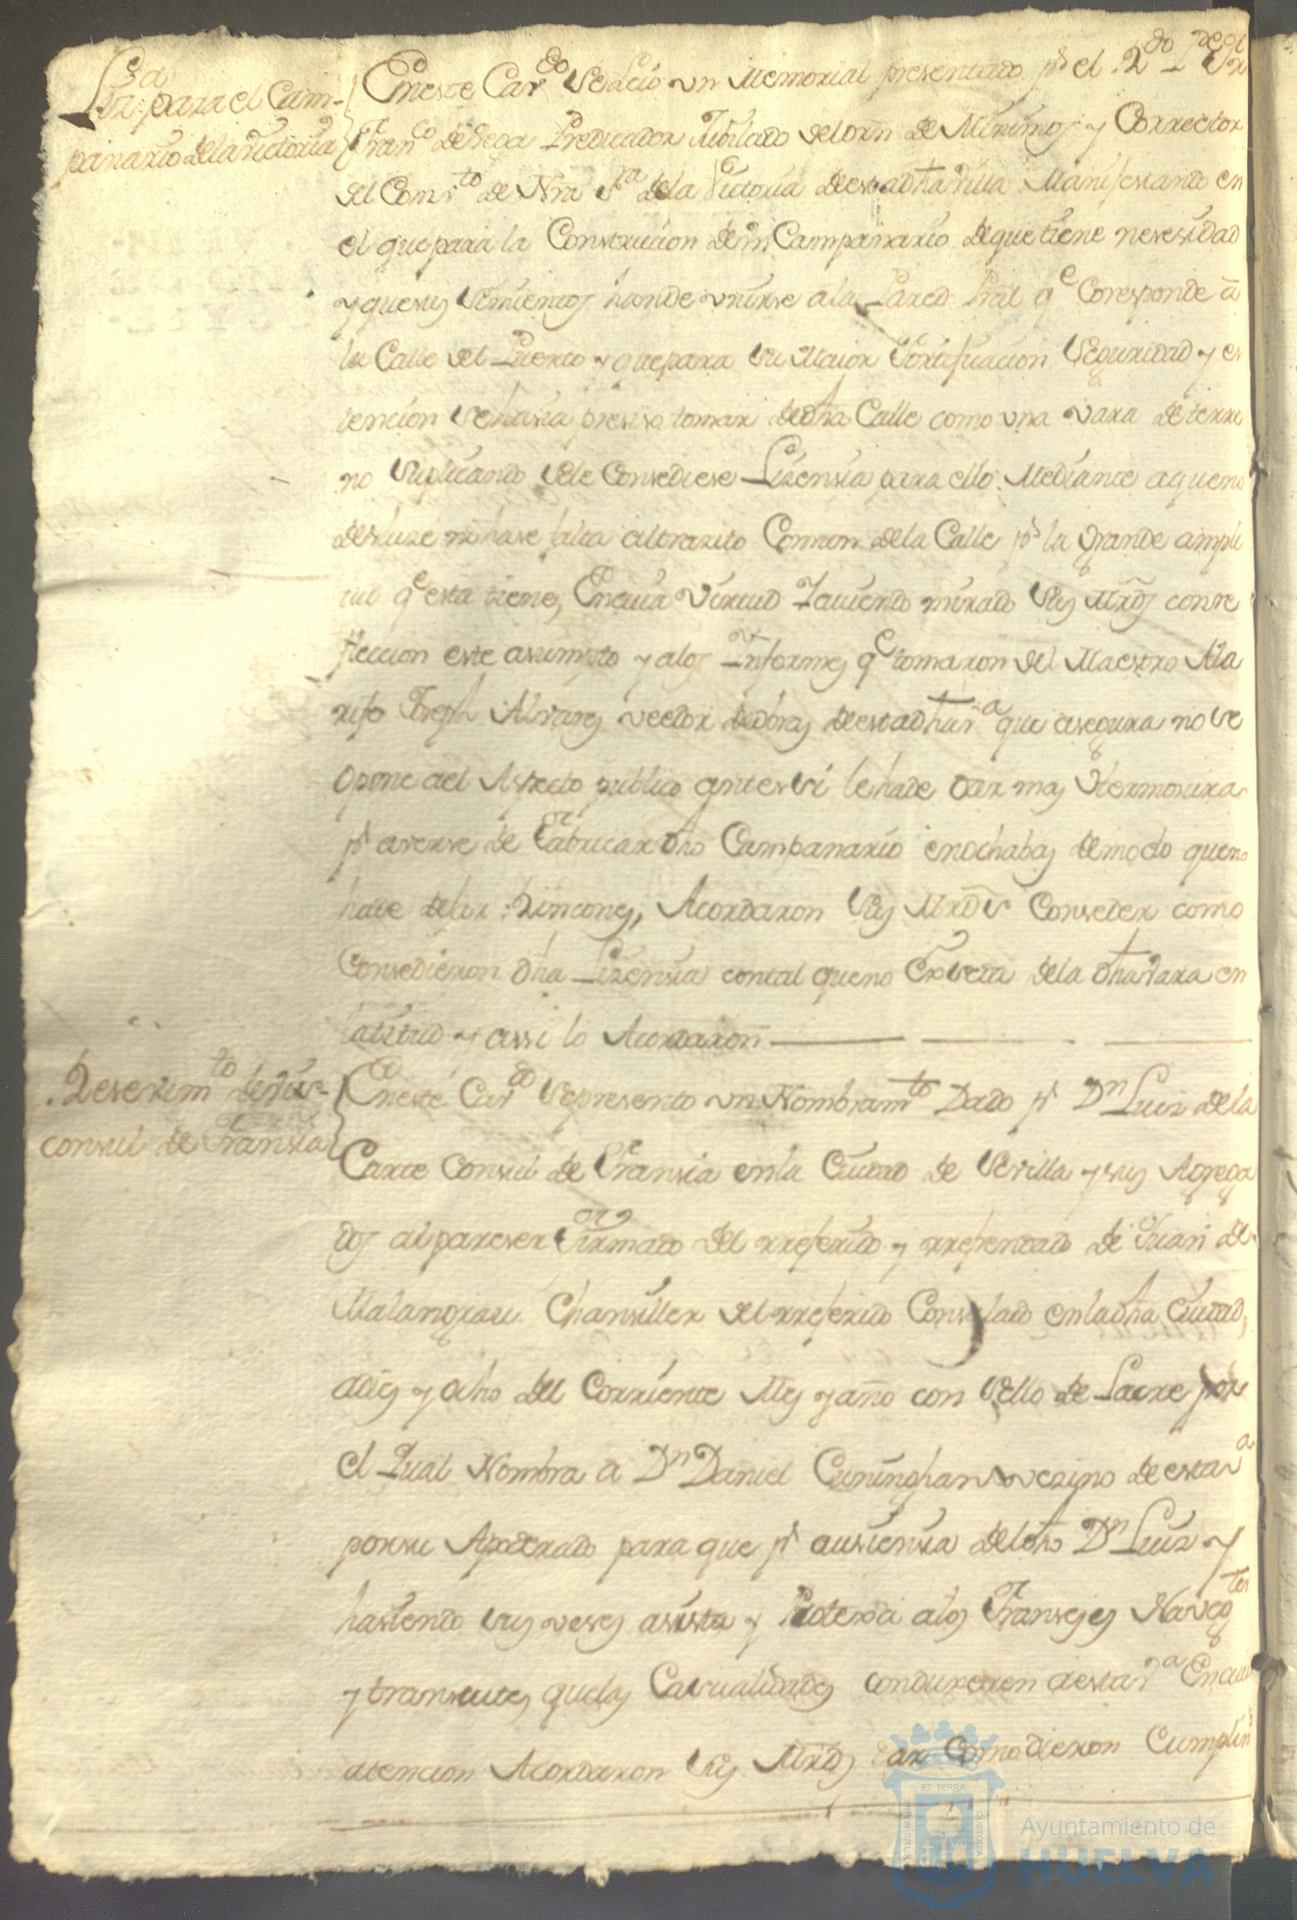 Liz.ª para el Cam-
panario de la victoria
En este Cav.do se leió un Memorial presentado p.r el R.do P.e
Fran.co de Vega Predicador Jubilado del orn de Minimos y Corrector
del Comv.to de Nra S.ra de la Victoria de esta dha villa Manifestando en
el que para la Construcion de un Campanario de que tiene nesesidad
y que sus Simientos han de unirse a la Pared Pral q.e Coresponde â
la Calle del Puerto y que para su Maior fortificacion Seguridad y es
tencion se hasia presiso tomar de dha Calle como una vara de terre
no suplicando sele Consediese Lizensia para ello Mediante a que no
desluze ni hase falta al transito Comun de la Calle p.r la grande ampli
tud q.e esta tiene, En cuia Virtud haviendo mirado sus Mrds con re
fleccion este asumpto y a los Informes q.e tomaron del Maestro Ala
rife Joseph Alvares veedor de obras de esta dha v.a que asegura no se
opone ael Aspecto publico antes si le ha de dar mas Hermosura
p.r averse de fabricar dho Campanario enochabas de modo que no
ha de dejar Rincones, Acordaron sus Mrds Conseder como
Consedieron dha Lizensia con tal que no Exseda de la dha vara en
latitud y assi lo Acordaron
Resevim.to de vis-
consul de Fransia
En este Cav.do se presento un Nombram.to Dado p.r D.n Luiz de la
Carte Consul de Fransia en la Ciudad de Sevilla y sus Agrega
dos al pareser firmado del rreferido y rrefrendado de Juan de
Malangrau Chansiller del rreferido Consulado en la dha Ciudad,
a dies y ocho del Corriente Mes y año con Sello de Lacre por
el Qual Nombra a D.n Daniel Cuningham vezino de esta v.a
por su Apoderado para que p.r ausiensia del dho D.n Luiz y
hasiendo sus veses asista y Protexa a los Franseses Naveg.tes
y transeuntes que las Casualidades conduxeren a esta v.a En cuia
atencion Acordaron sus Mrds dar Como dieron Cumplim
ET TERRAE
CUSTODIA
Ayuntamiento de
HUELVA